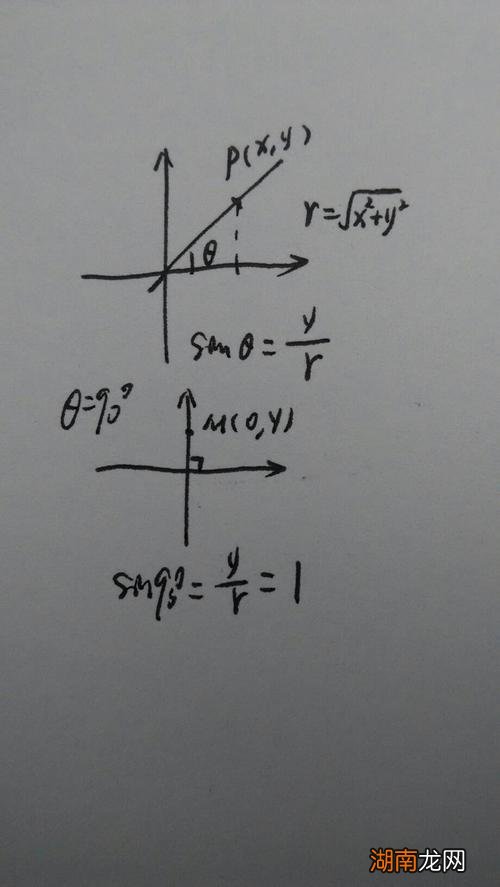 P(x,y)
r=√x²+y²
θ
sinθ = y/r
θ=90°
M(0,y)
sin90° = y/r = 1
湖南龙网